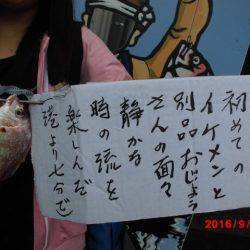 初めての
イケメンと
別品おじょう
さんの面々
静かな
時の流を
楽しんだ
一港より七分で
2016/9/